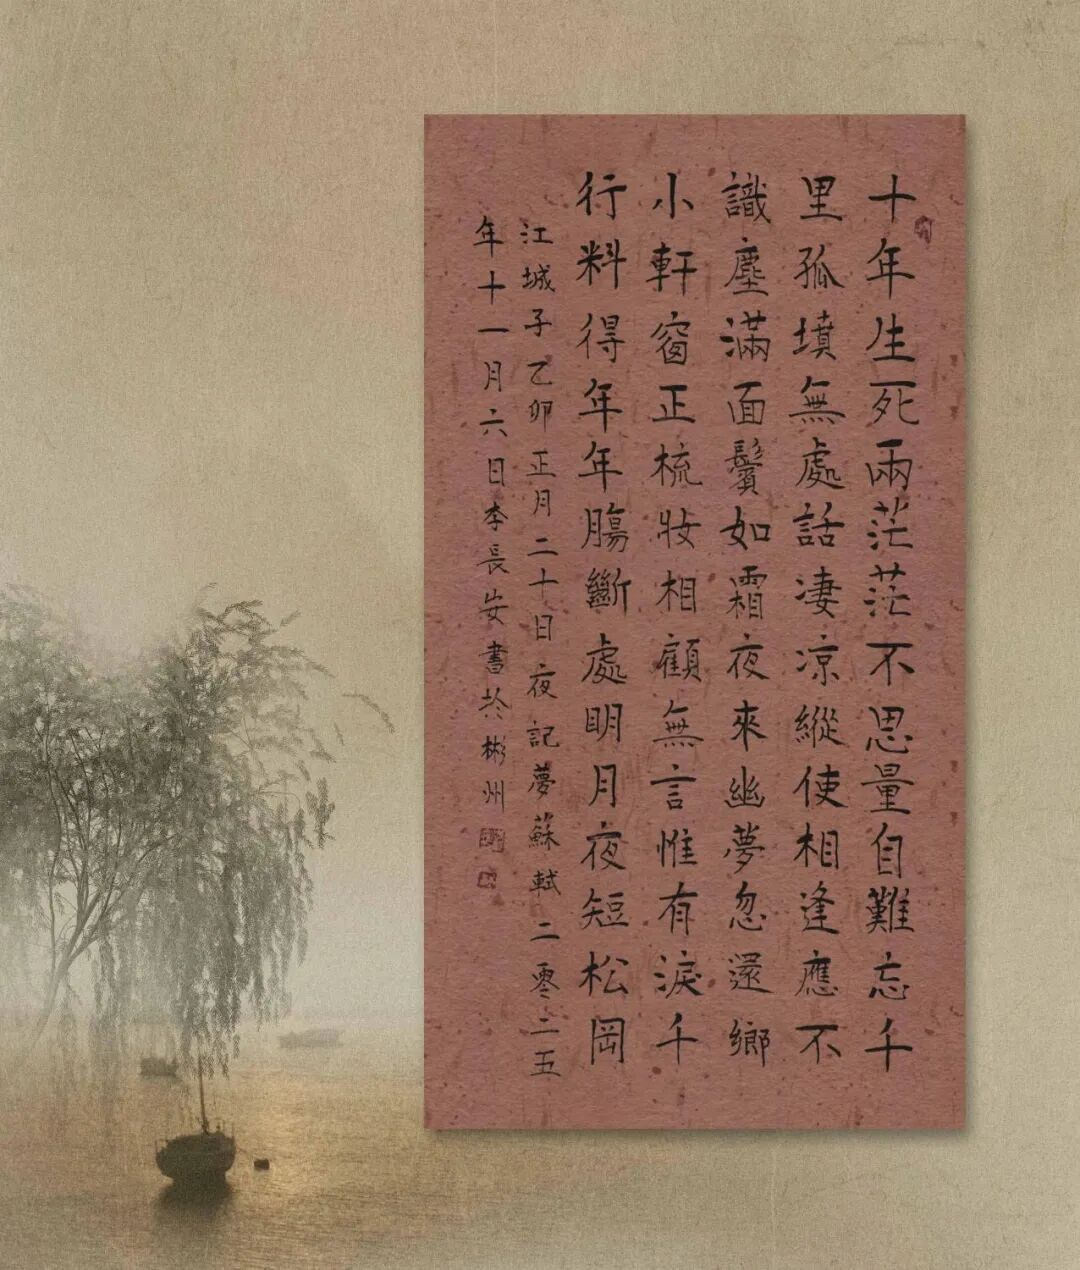 十年生死兩茫茫不思量自難忘千
里孤墳無處話淒涼縱使相逢應不
識塵滿面鬢如霜夜來幽夢忽還鄉
小軒窗正梳妝相顧無言惟有淚千
行料得年年腸斷處明月夜短松岡
江城子乙卯正月二十日夜記夢蘇軾二零二五
年十一月六日李長安書於彬州